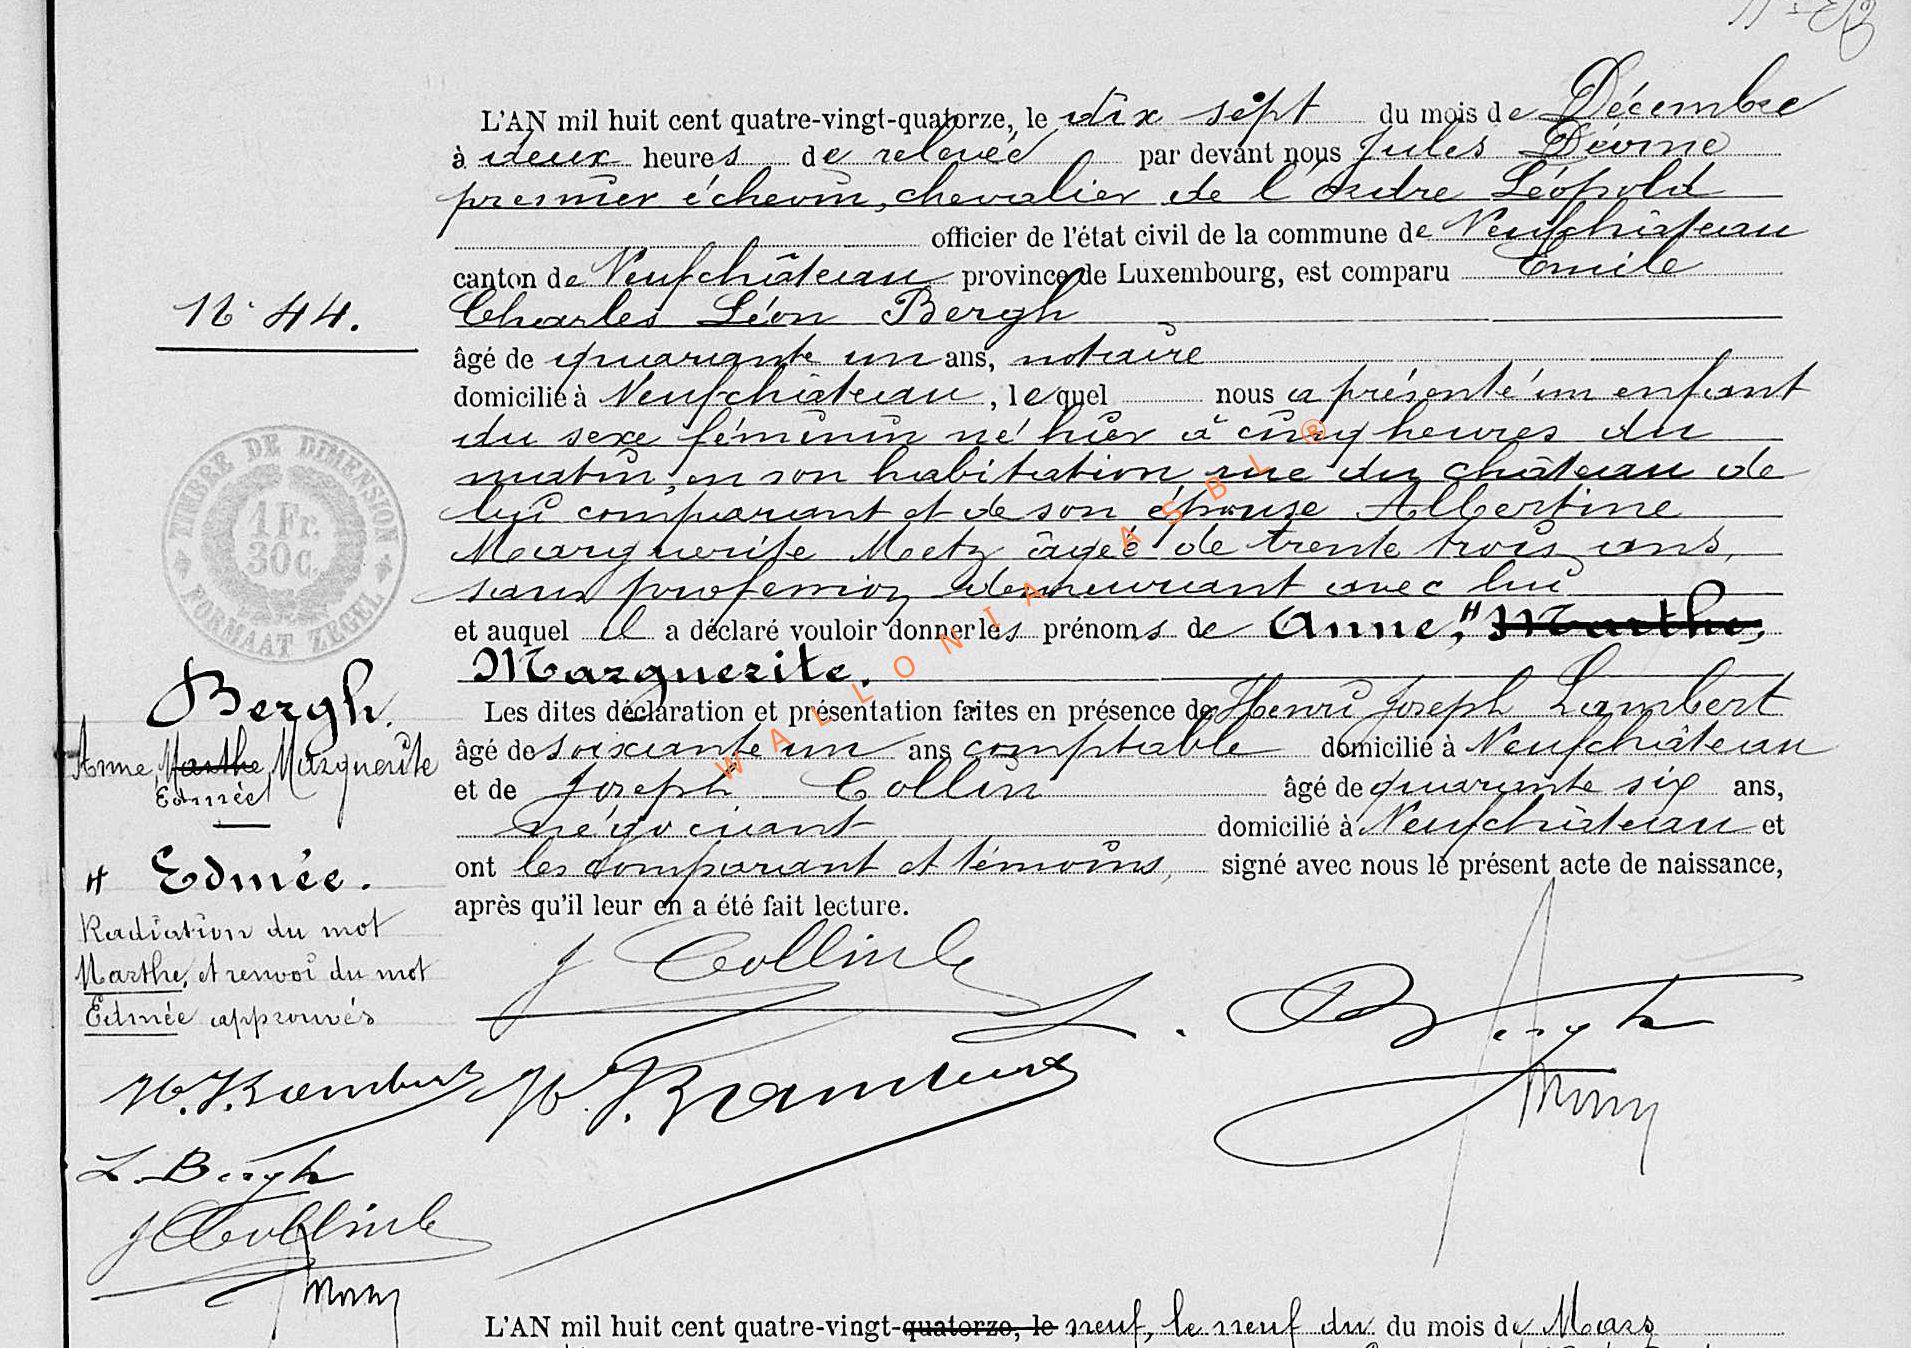 L'AN mil huit cent quatre-vingt-quatorze, le dix sept du mois de Décembre
à deux heures de relevée par devant nous Jules
premier échevin, chevalier de l'ordre Léopold
officier de l'état civil de la commune de Neufchâteau
canton de Neufchâteau province de Luxembourg, est comparu Emile
Charles Léon Bergh
âgé de quarante un ans, notaire
domicilié à Neufchâteau, lequel nous a présenté un enfant
du sexe féminin né hier à cinq heures du
matin, en son habitation, rue du château de
lui comparant et de son épouse Albertine
Marguerite Metz âgée de trente trois ans,
sans profession demeurant avec lui
et auquel il a déclaré vouloir donner les prénoms de Anne, " Marthe,
Marguerite.
Les dites déclaration et présentation faites en présence de Henri Joseph Lambert
âgé de soixante un ans comptable domicilié à Neufchâteau
et de Joseph Collin âgé de quarante six ans,
négociant domicilié à Neufchâteau et
ont les comparant et témoins, signé avec nous le présent acte de naissance,
après qu'il leur en a été fait lecture.
N° 44.
TIMBRE DE DIMENSION
1 Fr.
30 c.
FORMAAT ZEGEL
Bergh.
Anne, Marthe, Marguerite
Edmée
" Edmée.
Radiation du mot
Marthe, et renvoi du mot
Edmée approuvés
J Collin
L. Bergh
L. Bergh
J Collin
WALLONIA ASBL ®
L'AN mil huit cent quatre-vingt-quatorze, le neuf, le neuf du du mois de Mars